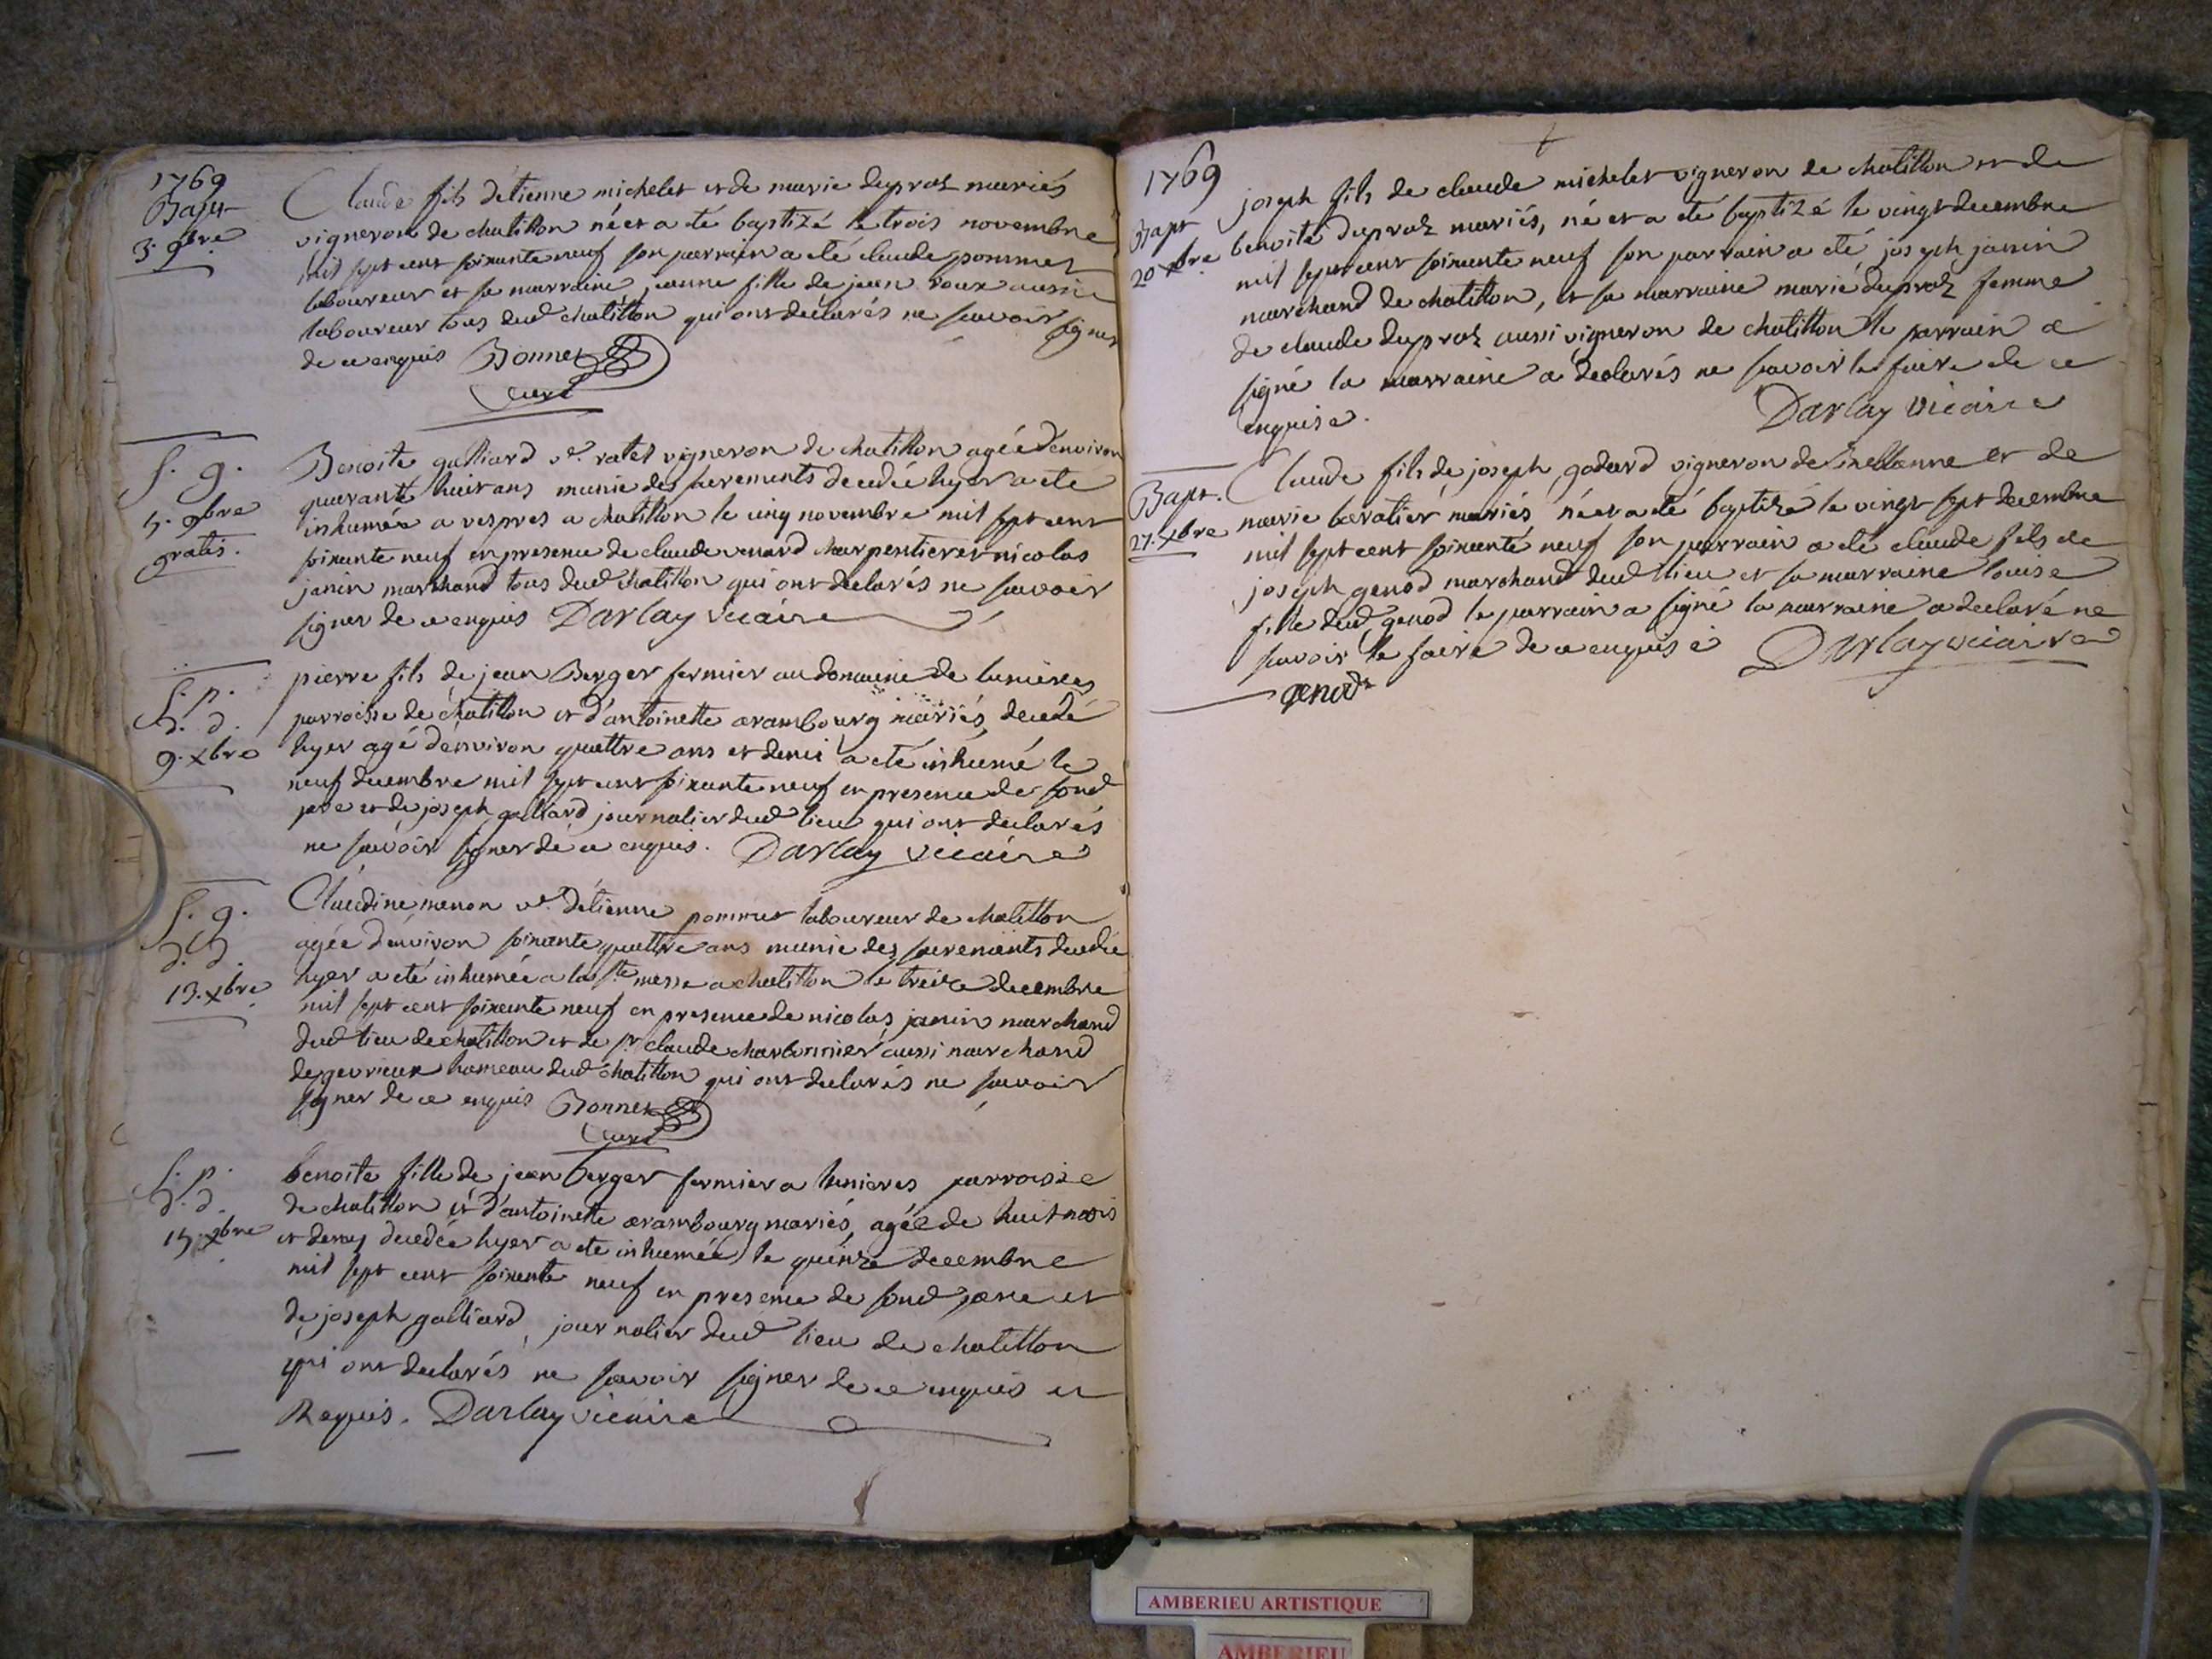 1769
Bapt
3. 9bre
Claude fils d'etienne michelet et de marie dupraz mariés
vigneron de chatillon né et a été baptizé le trois novembre
mil sept cent soixante neuf son parrain a été claude pommet
laboureur et sa marraine jeanne fille de jean roux aussi
laboureur tous dud chatillon qui ont déclarés ne sçavoir signer
de ce enquis Bonnet
Curé
S. g.
5. 9bre
gratis.
Benoite galliard ve. ratel vigneron de chatillon agée d'environ
quarante huit ans munie des sacrements decedée hyer a ete
inhumée a vespres a chatillon le cinq novembre mil sept cent
soixante neuf en presence de claude venard charpentier et nicolas
janin marchand tous dud chatillon qui ont declarés ne sçavoir
signer de ce enquis Darlay vicaire
S. p.
d. d.
9. xbre
pierre fils de jean Berger fermier au domaine de lunieres
parroisse de chatillon et d'antoinette arambourg mariés, decedé
hyer agé d'environ quattre ans et demi a été inhumé le
neuf decembre mil sept cent soixante neuf en presence de sond
pere et de joseph galliard journalier dud lieu qui ont declarés
ne sçavoir signer de ce enquis. Darlay vicaire
S. g.
d. d.
13. xbre
Claudine menon ve. d'etienne pommet laboureur de chatillon
agée d'environ soixante quattre ans munie des sacrements decedée
hyer a été inhumée a la ste messe a chatillon le treize decembre
mil sept cent soixante neuf en presence de nicolas janin marchand
dud lieu de chatillon et de sr claude charbonnier aussi marchand
de gevrieux hameau dud chatillon qui ont declarés ne sçavoir
signer de ce enquis Bonnet
Curé
S. p.
d. d.
15. xbre
benoite fille de jean berger fermier a lunieres parroisse
de chatillon et d'antoinette arambourg mariés, agée de huit mois
et demy decedée hyer a ete inhumée le quinze decembre
mil sept cent soixante neuf en presence de sond pere et
de joseph galliard journalier dud lieu de chatillon
qui ont declarés ne sçavoir signer de ce enquis et
Requis. Darlay vicaire
1769
Bapt
20 xbre
joseph fils de claude michelet vigneron de chatillon et de
benoite dupraz mariés, né et a été baptizé le vingt decembre
mil sept cent soixante neuf son parrain a été joseph janin
marchand de chatillon, et sa marraine marie dupraz femme
de claude dupraz aussi vigneron de chatillon le parrain a
signé la marraine a declarés ne sçavoir le faire de ce
enquise.
Darlay vicaire
Bapt.
27. xbre
Claude fils de joseph godard vigneron de et de
marie mariés né et a été baptizé le vingt sept decembre
mil sept cent soixante neuf son parrain a été claude fils de
joseph genod marchand dud lieu et sa marraine louise
fille dud genod le parrain a signé la marraine a declaré ne
sçavoir le faire de ce enquise Darlay vicaire
genod
AMBERIEU ARTISTIQUE
AMBERIEU